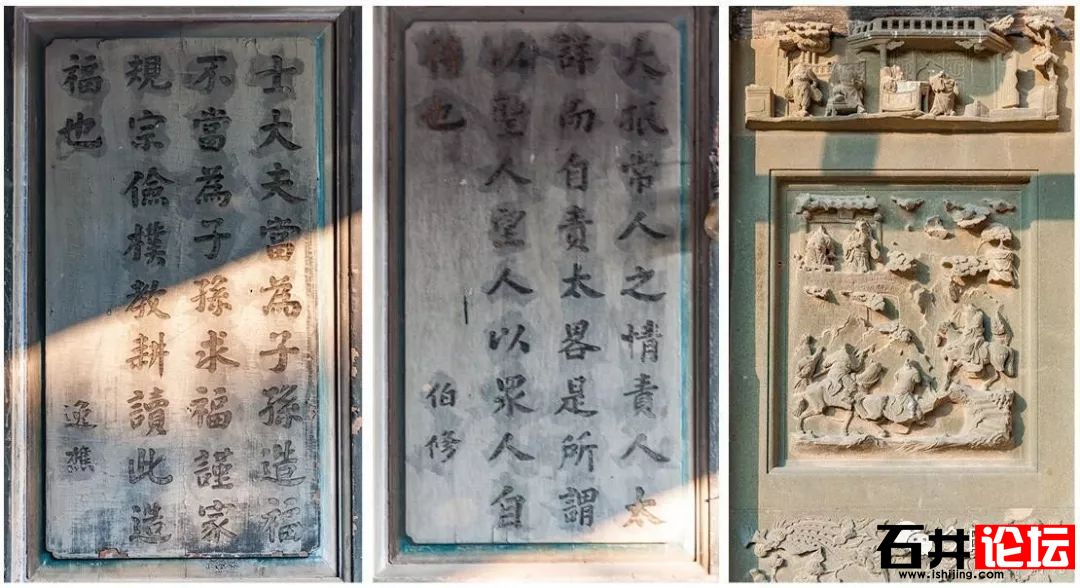 士大夫當為子孫造福
不當為子孫求福謹家
規宗儉樸教耕讀此造
福也
逸樵
大抵常人之情責人太
詳而自責太畧是所謂
以聖人望人以衆人自
待也
伯修
石井论坛
www.ishijing.com